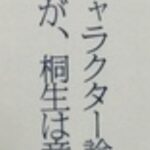 ャラクター論
が、桐生は意